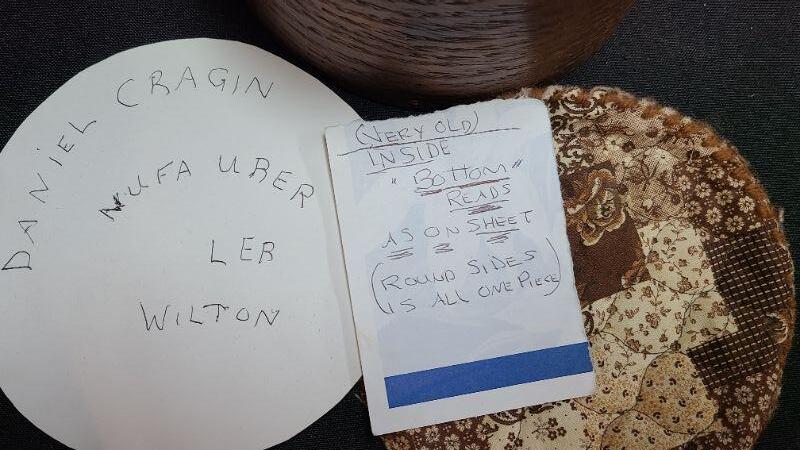 DANIEL CRAGIN
NUFA URER
LER
WILTON
(VERY OLD)
INSIDE
"BOTTOM"
READS
AS ON SHEET
(ROUND SIDES
IS ALL ONE PIECE)